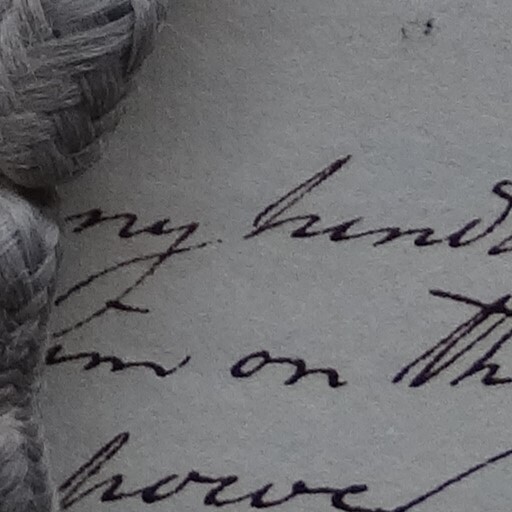 ny hund
im on th
howe